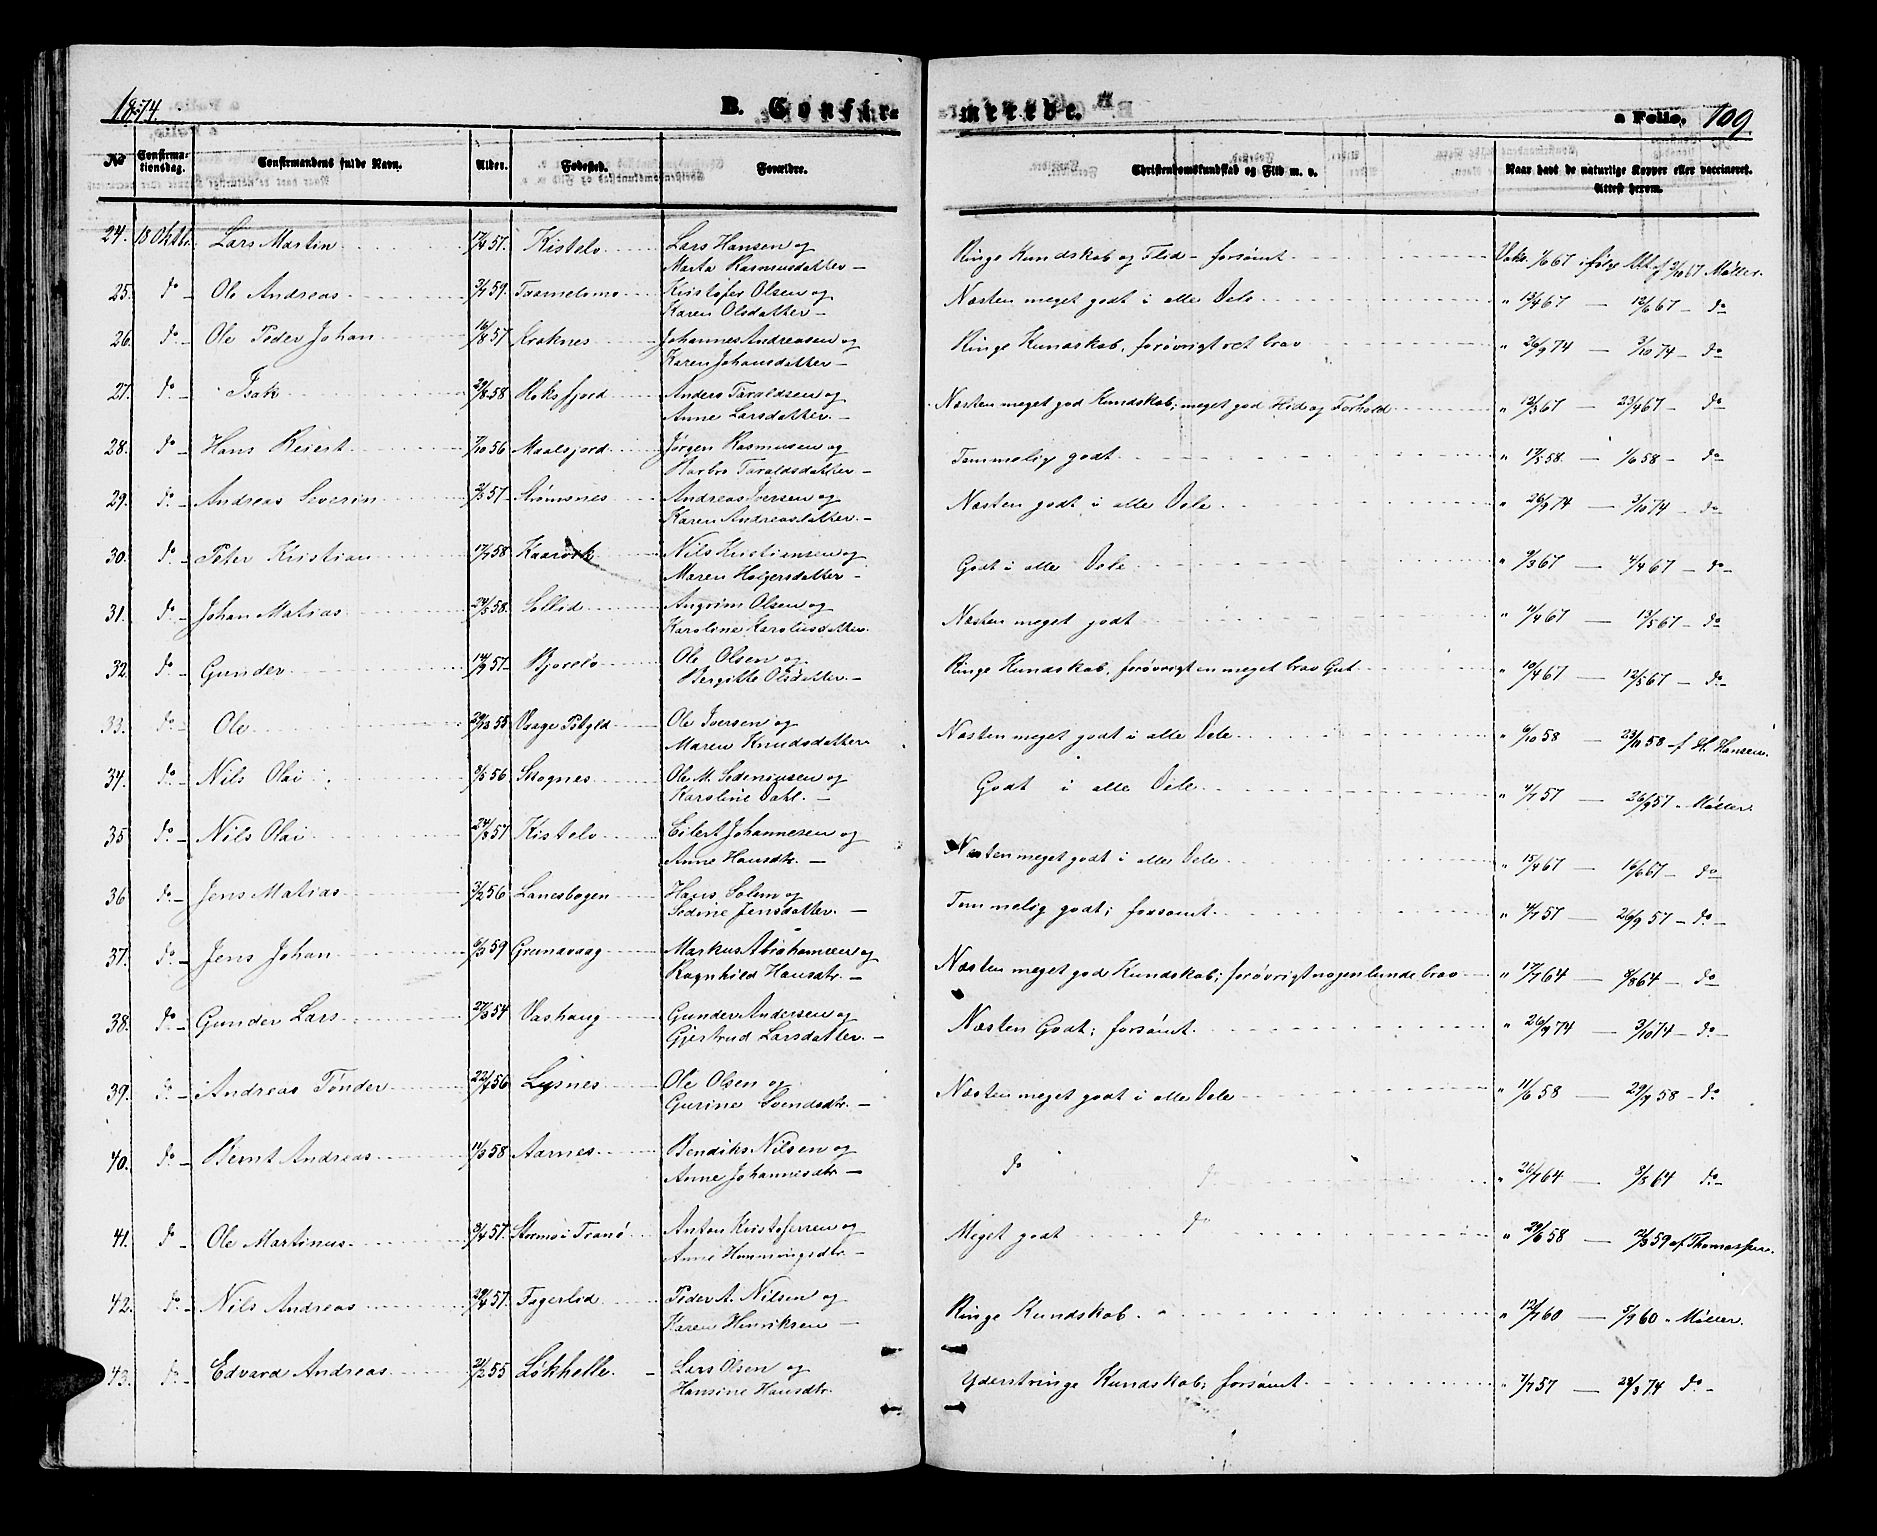 1874.
B. Confir-
merede.
a Folio. 109
No
Confirma-
tionsdag.
Confirmandens fulde Navn.
Alder.
Fødested.
Forældre.
Christendomskundskab og Flid m. v.
Naar havt de naturlige Kopper eller vaccineret.
Attest herom.
24. 18 Oktbr. Lars Martin 57. Kistelv Lars Hansen og Ringe Kundskab og Flid - forsømt Vakc. 67 ifølge Att. af 67 Møller.
Marta Rasmusdatter —
25. do Ole Andreas 59. Kristofer Olsen og Næsten meget godt i alle Dele " 13/4 67 — 12/6 67 — do
Karen Olsdatter —
26. do Ole Peder Johan 16/8 57 Kraknes Johannes Andreasen og Ringe Kundskab, forøvrigt ret brav " 26/9 74 — 3/10 74 — do
Karen Johansdatter —
27. do Isak 29/8 58 Roksfjord Anders Taraldsen og Næsten meget god Kundskab; meget god Flid og Forhold " 12/3 67 — 23/4 67 — do
Anne Larsdatter —
28. do Hans Reiert 7/10 56 Maalsjord Jørgen Rasmusen og Temmelig godt " 17/5 58. — 1/6 58 — do
Marbro Taraldsdatter —
29. do Andreas Severin 57. Strømsnes Andreas Iversen og Næsten godt i alle Dele " 26/9 74 — 3/10 74 — do
Karen Andreasdatter —
30. do Peter Kristian 17/7 58 Kaarvik Nils Kristiansen og Godt i alle Dele " 9/3 67 — 4/4 67 — do
Maren Holgersdatter —
31. do Johan Matias 24/5 58. Sollid Angrim Olsen og Næsten meget godt " 11/4 67 — 13/5 67 — do
Karoline Karolusdatter.
32. do Gunder 14/9 57 Bjorelv Ole Olsen og Ringe Kundskab, forøvrigt en meget brav Gut " 10/4 67 — 12/5 67 — do
Bergitte Olsdatter. —
33. do Ole 29/12 55 Ole Iversen og Næsten meget godt i alle Dele " 6/10 58 — 23/10 58 — f H. Hansen.
Maren Knudsdatter
34. do Nils Olai 8/5 56 Skognes Ole M. Sedeniusen og Godt i alle Dele " 4/7 57 — 26/9 57 " Møller.
Karoline Dahl. —
35 do Nils Olai 24/8 57 Kistelv Eilert Johannesen og Næsten meget godt i alle Dele " 15/4 67 — 16/6 67 — do
Anne Hansdtr. —
36 do Jens Matias 3/2 56 Lanesbogen Hans Solem og Temmelig godt; forsømt. " 4/7 57 — 26/9 57 — do
Sedine Jensdatter. —
37. do Jens Johan 6/3 59 Grundvaag Markus Abrahamsen og Næsten meget god Kundskab; forøvrigt nogenlunde brav " 17/7 64 — 8/8 64 — do
Ragnhild Hansdtr. —
38. do Gunder Lars 27/3 54 Vashaug Gunder Andersen og Næsten Godt; forsømt. " 26/9 74 — 3/10 74 — do
Gjertrud Larsdatter. —
39. do Andreas Tønder 22/7 56 Lysnes Ole Olsen og Næsten meget godt i alle Dele " 11/6 58 — 29/9 58 — do
Gurine Svendsdtr. —
40. do Bernt Andreas 11/3 58 Aarnes Bendiks Nilsen og do do " 26/7 64 — 8/8 64 do —
Anne Johannesdtr. —
41. do Ole Martinus 8/4 57. Stormo i Tranø Anton Kristofersen og Meget godt do " 29/6 58 — 12/3 59 af Thomassen.
Anne Henningsdtr. —
42. do Nils Andreas 29/4 57. Fagerlid Peder A. Nilsen og Ringe Kundskab. " 12/7 60 — 5/9 60 " Møller.
Karen Henriksen —
43. do Edvard Andreas 21/2 55 Løkhelle. Lars Olsen og Yderst ringe Kundskab; forsømt. " 7/7 57 — 28/3 74 do —
Hansine Hansdtr.